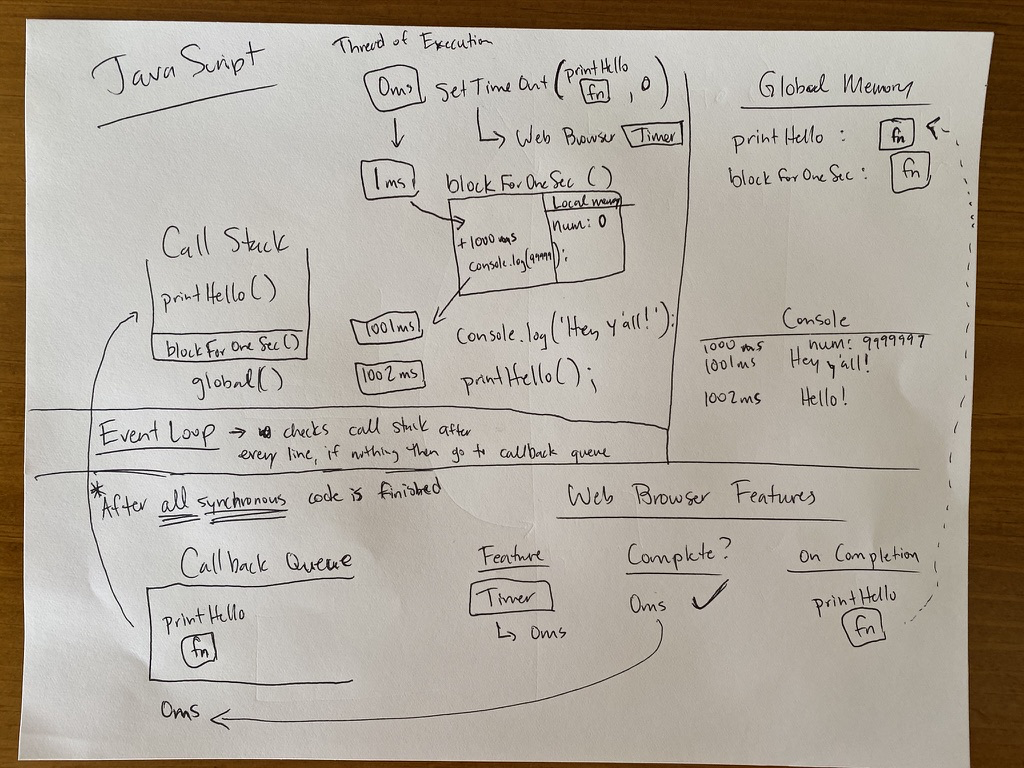 JavaScript
Thread of Execution
0ms
SetTimeOut (printHello fn, 0)
Web Browser Timer
1ms
blockForOneSec ()
Local memory
num: 0
+1000 ms
console.log(99999);
1001ms
Console.log('Hey y'all!');
1002ms
printHello();
Global Memory
printHello : fn
blockForOneSec : fn
Call Stack
printHello()
blockForOneSec()
global()
Console
1000 ms num: 9999997
1001ms Hey y'all!
1002ms Hello!
Event Loop → checks call stack after
every line, if nothing then go to callback queue
*After all synchronous code is finished
Web Browser Features
Callback Queue
printHello
fn
0ms
Feature
Timer
0ms
Complete?
0ms ✓
on Completion
printHello
fn